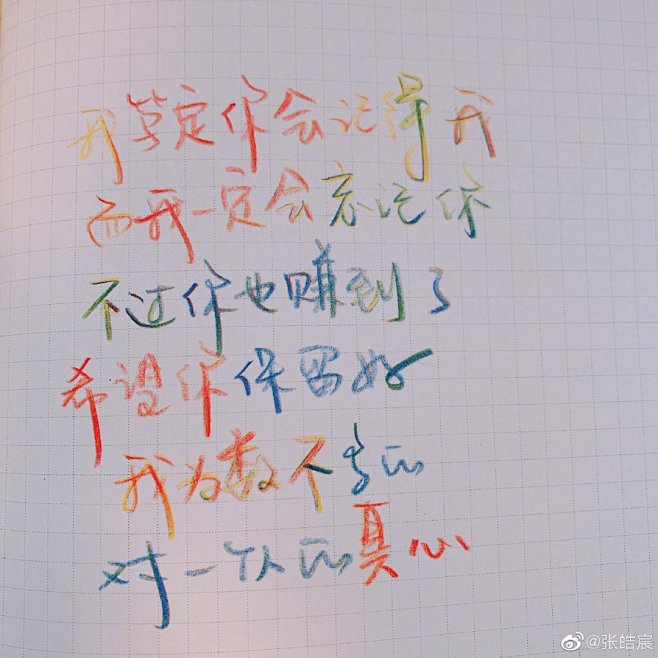 我笃定你会记得我
而我一定会忘记你
不过你也赚到了
希望你保留好
我为数不多的
对一个人的真心
@张皓宸